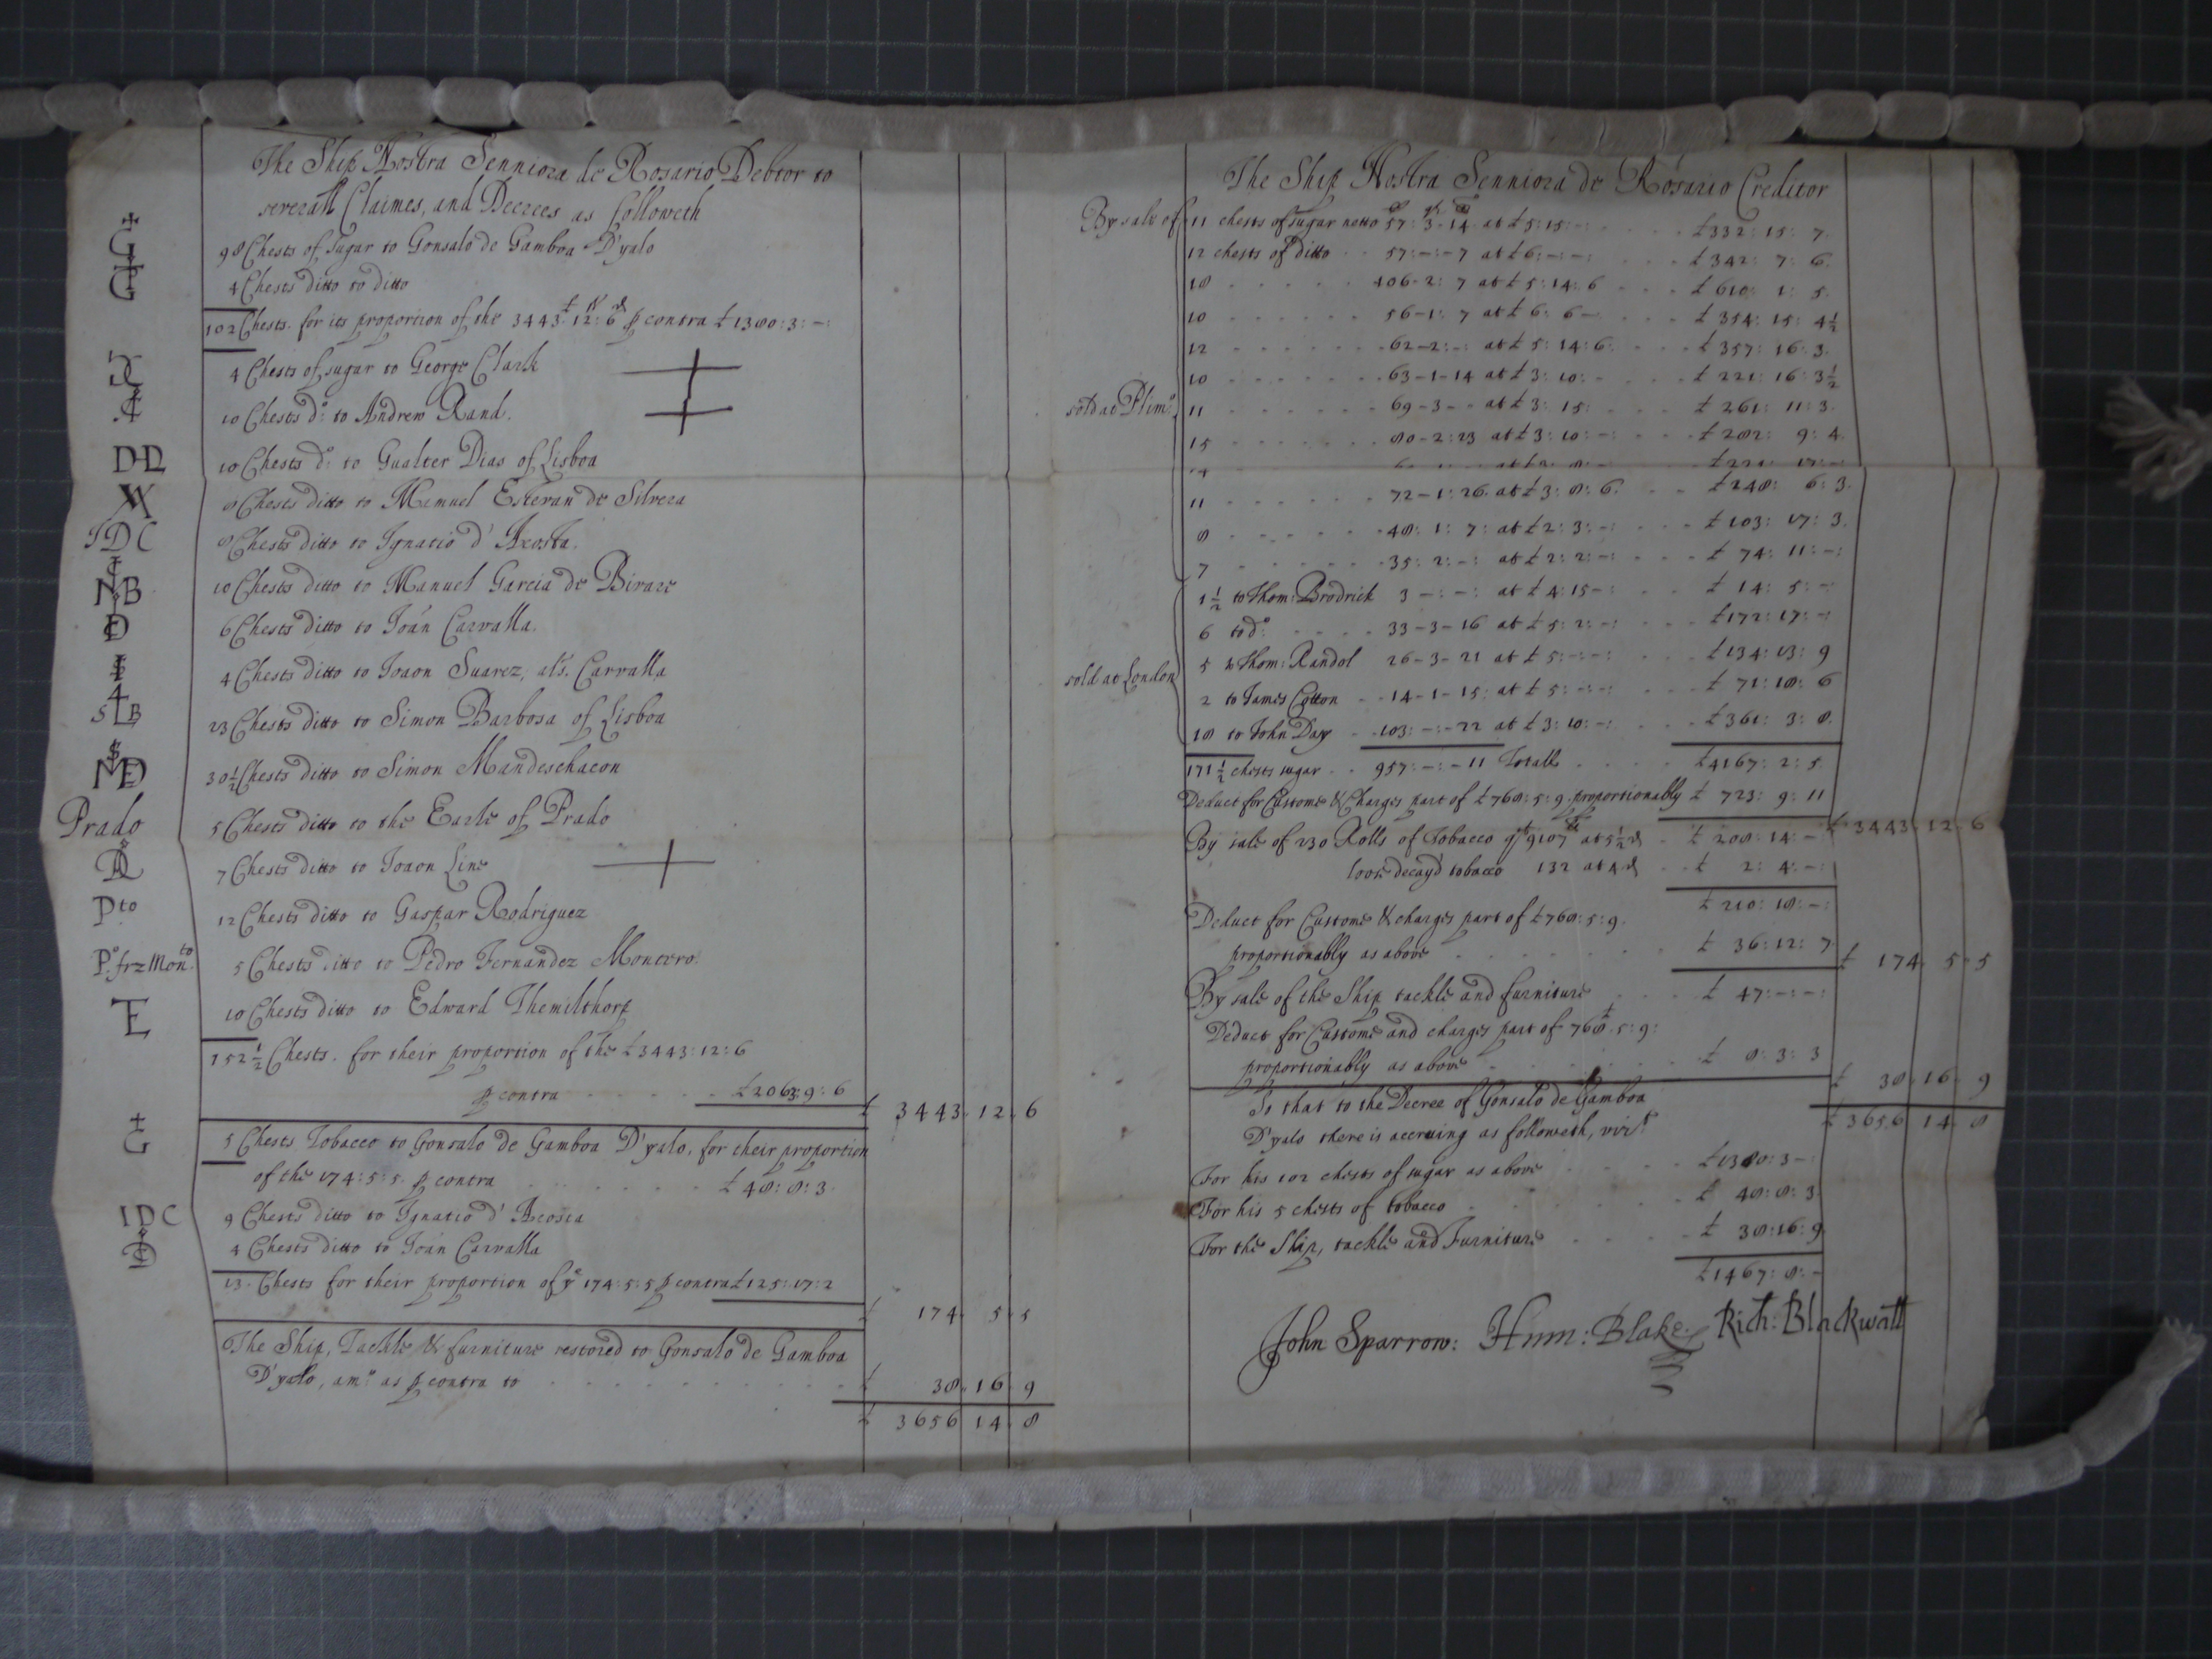 The Ship Nostra Senniora de Rosario Debtor to
severall Claimes, and Decrees as followeth
G 98 Chests of sugar to Gonsalo de Gamboa D'yalo
G 4 Chests ditto to ditto
102 Chests. for its proportion of the 3443£: 12s: 6d p contra £1380: 3: -:
4 Chests of sugar to George Clark
10 Chests do: to Andrew Rand.
DD 10 Chests do: to Gualter Dias of Lisboa
8 Chests ditto to Manuel Estevan de Silvera
IDC 8 Chests ditto to Ignatio d' Acosta.
NB 10 Chests ditto to Manuel Garcia de Bivare
D 6 Chests ditto to Joán Carvalla.
4 Chests ditto to Joaon Suarez, als. Carvalla
SLB 23 Chests ditto to Simon Barbosa of Lisboa
30 1/2 Chests ditto to Simon Mandeschacon
Prado 5 Chests ditto to the Earle of Prado
7 Chests ditto to Joaon Line
Pto 12 Chests ditto to Gaspar Rodriguez
Po: frz Monto. 5 Chests ditto to Pedro Fernandez Montero.
E 10 Chests ditto to Edward Themilthorp
152 1/2 Chests. for their proportion of the £3443: 12: 6
p contra £2063: 9: 6
£ 3443. 12. 6
G 5 Chests Tobacco to Gonsalo de Gamboa D'yalo, for their proportion
of the 174: 5: 5. p contra £48: 8: 3.
IDC 9 Chests ditto to Ignatio d' Acosta
D 4 Chests ditto to Joán Carvalla
13. Chests for their proportion of ye 174: 5: 5 p contra £125: 17: 2
£ 174. 5. 5
The Ship, Tackle & furniture restored to Gonsalo de Gamboa
D'yalo, amo: as p contra to £ 38. 16. 9
£ 3656 14. 8
The Ship Nostra Senniora de Rosario Creditor
By sale of 11 chests of sugar netto 57: 3-14 at £5: 15: -: £332: 15: 7.
12 chests of ditto 57: -: -7 at £6: -: -: £342: 7: 6.
18 106-2: 7 at £5: 14: 6 £610: 1: 5.
10 56-1: 7 at £6: 6- £354: 15: 4 1/2
12 62-2: -: at £5: 14: 6. £357: 16: 3.
10 63-1-14 at £3: 10: - £221: 16: 3 1/2
sold at Plimo. 11 69-3- - at £3: 15: £261: 11: 3.
15 80-2: 23 at £3: 10: -: £282: 9: 4.
11 72-1: 26. at £3: 8: 6. £248: 6: 3.
8 48: 1: 7: at £2: 3: -: £103: 17: 3.
7 35: 2: -: at £2: 2: -: £74: 11: -:
1 1/2 to Thom: Brodrick 3 -: -: at £4: 15 -: £14: 5: -:
6 to do: 33-3-16 at £5: 2: -: £172: 17: -:
5 to Thom: Randol 26-3-21 at £5: -: -: £134: 13: 9
sold at London 2 to James Cotton 14-1-15: at £5: -: -: £71: 18: 6
18 to John Day 103: -: -22 at £3: 10: -: £361: 3: 8.
171 1/2 chests sugar 957: -: -11 Totall £4167: 2: 5.
Deduct for Custome & Charges part of £768: 5: 9. proportionably £723: 9: 11
£ 3443. 12. 6
By sale of 230 Rolls of Tobacco qt 9107 at 5 1/2d £208: 14: -
loose decay'd tobacco 132 at 4d £2: 4: -:
£210: 18: -:
Deduct for Custome & charges part of £768: 5: 9.
proportionably as above £36: 12: 7.
£ 174. 5. 5
By sale of the Ship tackle and furniture £47: -: -:
Deduct for Custome and charges part of 768£. 5: 9:
proportionably as above £8: 3: 3
£ 38. 16. 9
£ 3656 14. 8
So that to the Decree of Gonsalo de Gamboa
D'yalo there is accruing as followeth, vizt.
For his 102 chests of sugar as above £1380: 3 -:
For his 5 chests of tobacco £48: 8: 3.
For the Ship, tackle and Furniture £38: 16: 9.
£1467: 8: -
John Sparrow: Hum: Blake. Rich: Blackwall